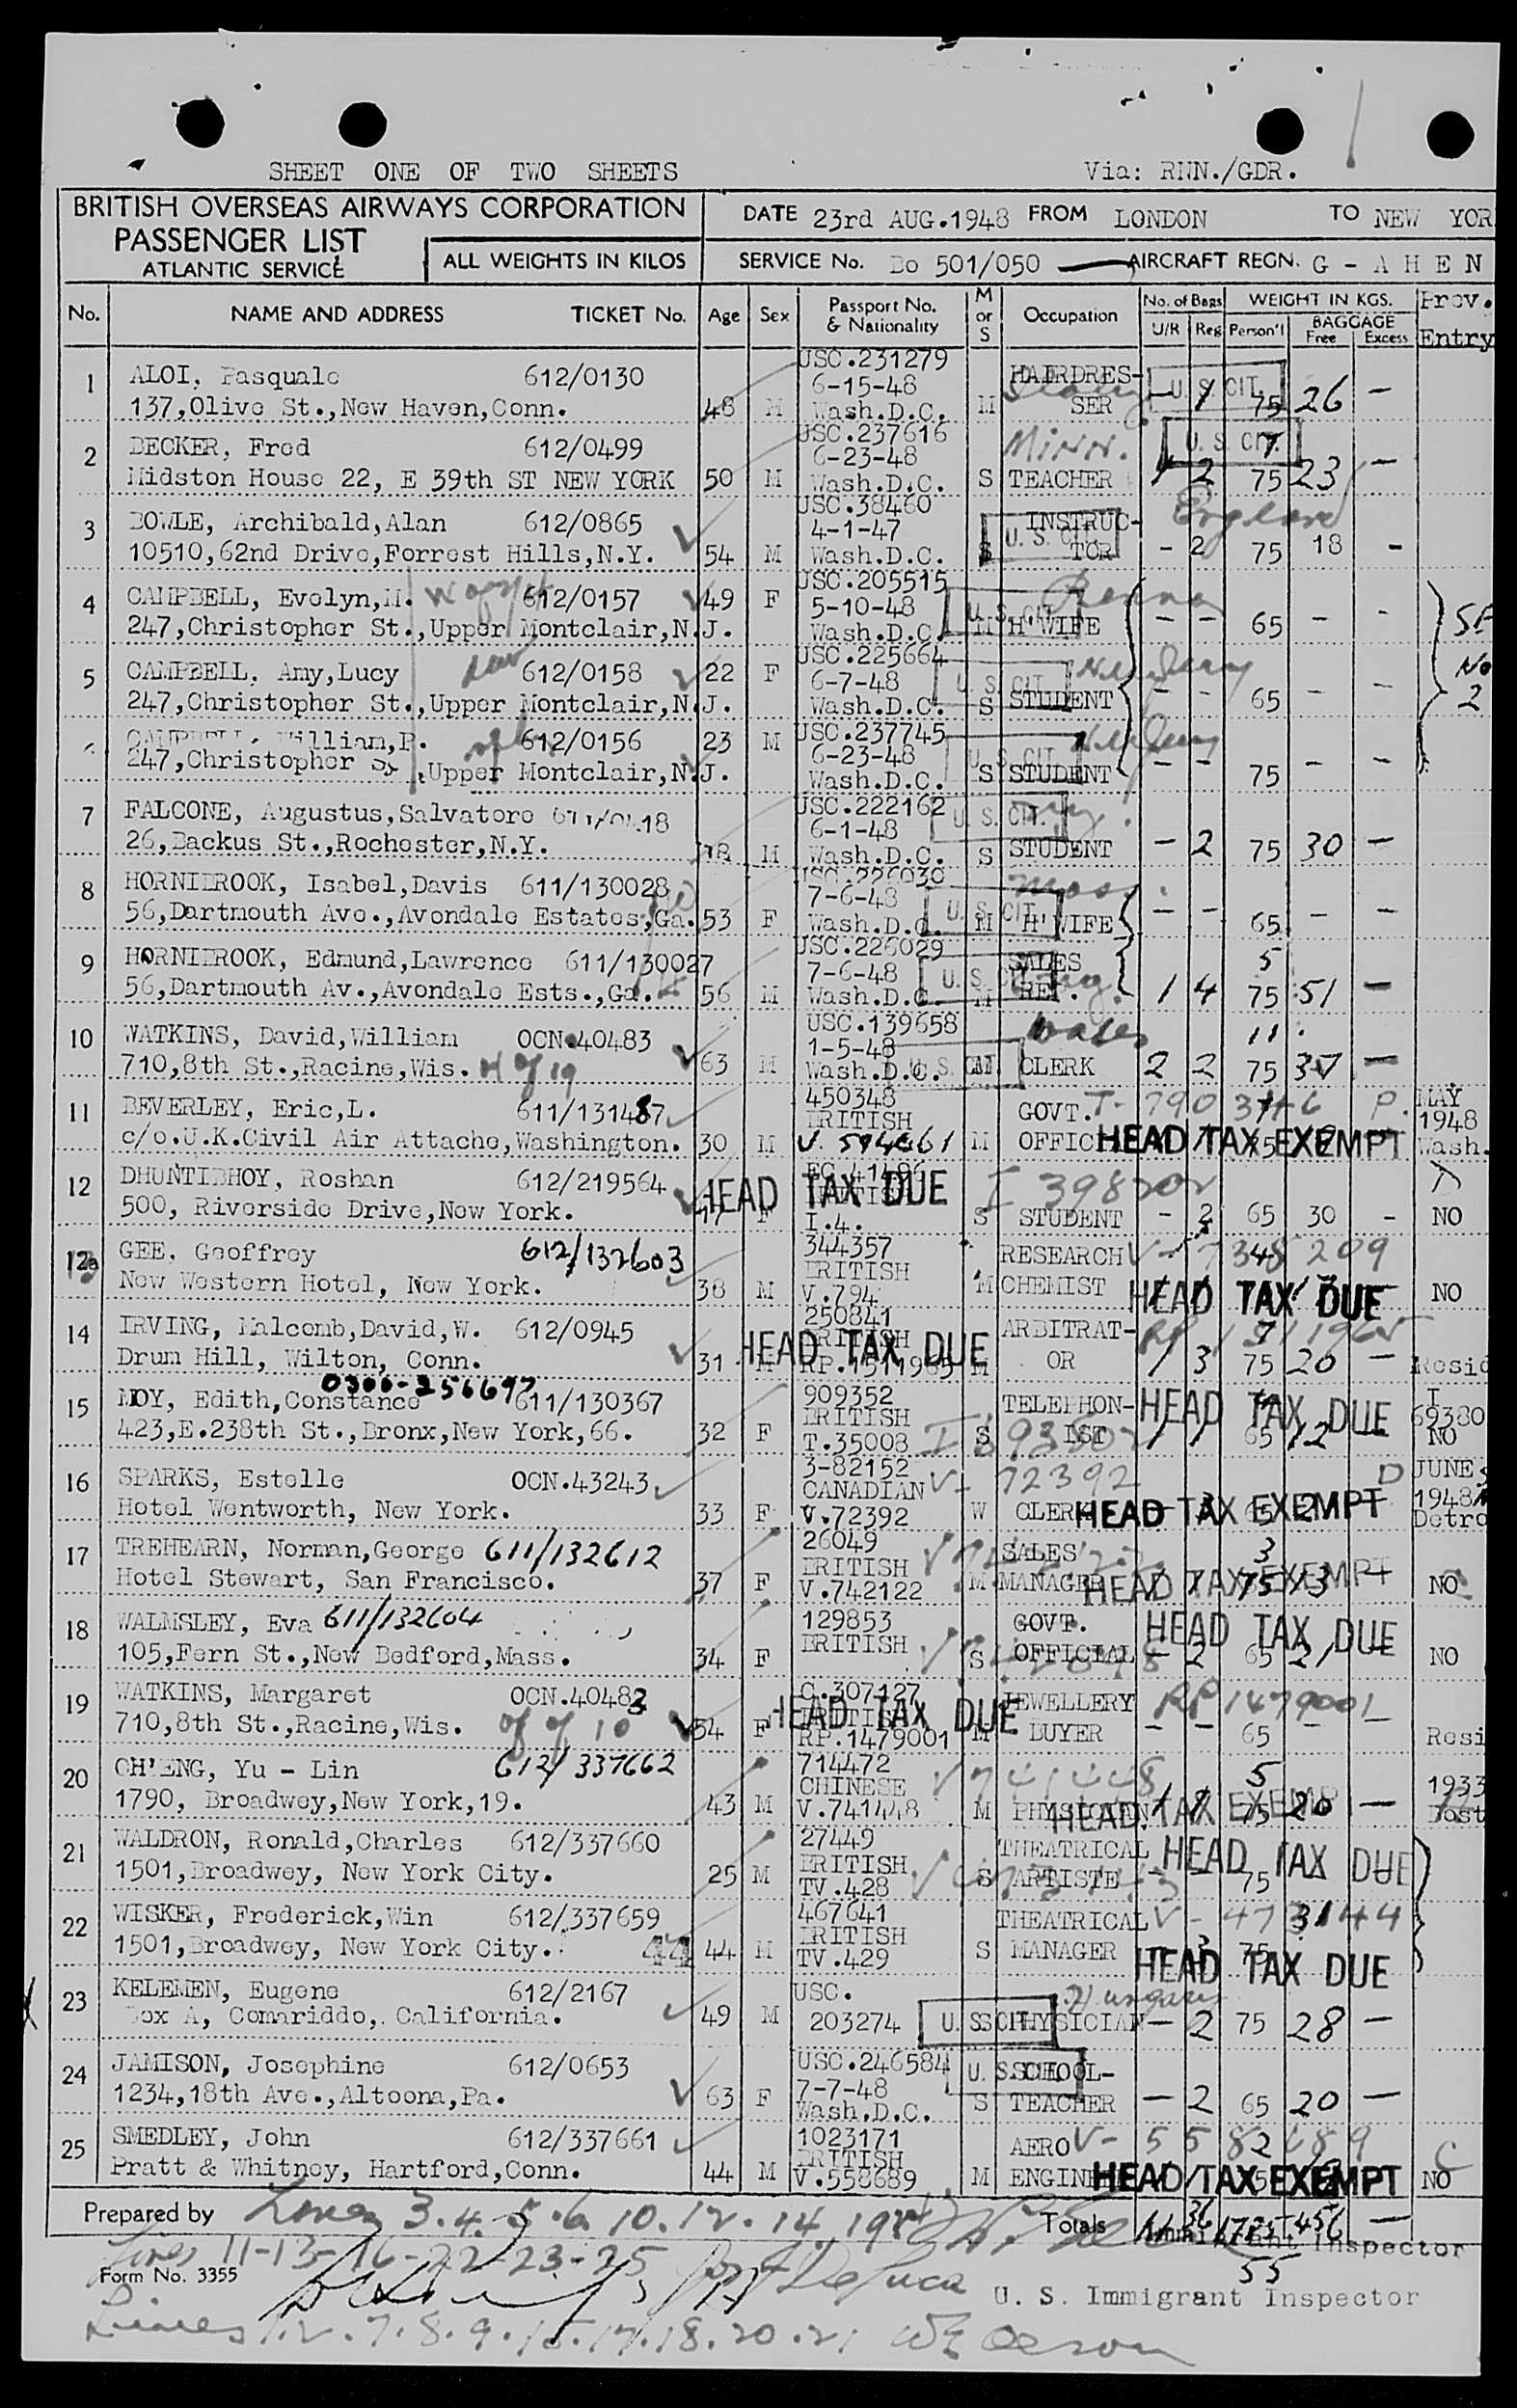 SHEET ONE OF TWO SHEETS Via: RNN./GDR.
BRITISH OVERSEAS AIRWAYS CORPORATION
PASSENGER LIST
ATLANTIC SERVICE
ALL WEIGHTS IN KILOS
DATE 23rd AUG.1948 FROM LONDON TO NEW YOR
SERVICE No. Bo 501/050 AIRCRAFT REGN. G - A H E N
No. NAME AND ADDRESS TICKET No. Age Sex Passport No. & Nationality M or S Occupation No. of Bags U/R Reg WEIGHT IN KGS. Person'l BAGGAGE Free Excess Prev. Entry
1 ALOI, Pasquale 612/0130 USC.231279 HAIRDRES-
6-15-48 U. S. CIT.
137,Olive St.,New Haven,Conn. 48 M Wash.D.C. M SER - 1 75 26 -
2 BECKER, Fred 612/0499 USC.237616 Minn. U. S. CIT.
6-23-48
Midston House 22, E 39th ST NEW YORK 50 M Wash.D.C. S TEACHER 1 2 75 23 -
3 BOWLE, Archibald,Alan 612/0865 USC.38460 INSTRUC- England
4-1-47 U. S. CIT.
10510,62nd Drive,Forrest Hills,N.Y. 54 M Wash.D.C. S TOR - 2 75 18 -
4 CAMPBELL, Evelyn,M. 612/0157 49 F USC.205515
5-10-48 U. S. CIT.
247,Christopher St.,Upper Montclair,N.J. Wash.D.C. M H'WIFE - - 65 - -
5 CAMPBELL, Amy,Lucy 612/0158 22 F USC.225664
6-7-48 U. S. CIT.
247,Christopher St.,Upper Montclair,N.J. Wash.D.C. S STUDENT - - 65 - - No 2
CAMPBELL, William,P. 612/0156 23 M USC.237745
6-23-48 U. S. CIT.
247,Christopher St.,Upper Montclair,N.J. Wash.D.C. S STUDENT - - 75 - -
7 FALCONE, Augustus,Salvatore USC.222162
6-1-48 U. S. CIT.
26,Backus St.,Rochester,N.Y. M Wash.D.C. S STUDENT - 2 75 30 -
8 HORNIBROOK, Isabel,Davis 611/130028 USC.226030 Mass.
7-6-48 U. S. CIT.
56,Dartmouth Ave.,Avondale Estates,Ga. 53 F Wash.D.C. M H'WIFE - - 65 - -
9 HORNIBROOK, Edmund,Lawrence 611/130027 USC.226029 SALES 5
7-6-48 U. S. CIT.
56,Dartmouth Av.,Avondale Ests.,Ga. 56 M Wash.D.C. M REP. 1 4 75 51 -
10 WATKINS, David,William OCN.40483 USC.139658 Wales 11
1-5-48 U. S. CIT.
710,8th St.,Racine,Wis. H of 19 63 M Wash.D.C. M CLERK 2 2 75 37 -
11 BEVERLEY, Eric,L. 611/131487 450348 BRITISH GOVT. MAY 1948
c/o.U.K.Civil Air Attache,Washington. 30 M M OFFIC HEAD TAX EXEMPT Wash.
12 DHUNTIBHOY, Roshan 612/219564 HEAD TAX DUE
500, Riverside Drive,New York. F I.4. S STUDENT - 2 65 30 - NO
12a GEE, Geoffrey 612/132603 344357 BRITISH RESEARCH
New Western Hotel, New York. 38 M V.794 M CHEMIST HEAD TAX DUE NO
14 IRVING, Malcomb,David,W. 612/0945 250841 BRITISH ARBITRAT-
HEAD TAX DUE
Drum Hill, Wilton, Conn. 31 M RP.1511965 M OR 1 3 75 20 - Resid
0300-256697
15 MOY, Edith,Constance 611/130367 909352 BRITISH TELEPHON- HEAD TAX DUE I 69380
423,E.238th St.,Bronx,New York,66. 32 F T.35008 S IST 65 12 NO
16 SPARKS, Estelle OCN.43243 3-82152 CANADIAN V- 72392 JUNE
Hotel Wentworth, New York. 33 F V.72392 W CLERK HEAD TAX EXEMPT 1948 Detro
17 TREHEARN, Norman,George 611/132612 26049 BRITISH SALES 3
Hotel Stewart, San Francisco. 37 F V.742122 M MANAGER HEAD TAX EXEMPT 75 13 NO
18 WALMSLEY, Eva 611/132604 129853 BRITISH GOVT. HEAD TAX DUE
105,Fern St.,New Bedford,Mass. 34 F S OFFICIAL - 2 65 21 - NO
19 WATKINS, Margaret OCN.40482 C.307127 BRITISH JEWELLERY RP 1479001
HEAD TAX DUE
710,8th St.,Racine,Wis. of 10 54 F RP.1479001 M BUYER - - 65 - - Resi
20 CH'ENG, Yu - Lin 612/337662 714472 CHINESE V 741448 5 1933
1790, Broadwey,New York,19. 43 M V.741448 M PHYSICIAN HEAD TAX EXEMPT 75 20 -
21 WALDRON, Ronald,Charles 612/337660 27449 BRITISH THEATRICAL HEAD TAX DUE
1501,Broadwey, New York City. 25 M TV.428 S ARTISTE 75
22 WISKER, Frederick,Win 612/337659 467641 BRITISH THEATRICAL
1501,Broadwey, New York City. 44 44 M TV.429 S MANAGER HEAD TAX DUE
23 KELEMEN, Eugene 612/2167 USC. Hungary
Box A, Comariddo,. California. 49 M 203274 U. S. CIT. PHYSICIAN - 2 75 28 -
24 JAMISON, Josephine 612/0653 USC.246584 U. S. CIT. SCHOOL-
7-7-48
1234,18th Ave.,Altoona,Pa. 63 F Wash.D.C. S TEACHER - 2 65 20 -
25 SMEDLEY, John 612/337661 1023171 BRITISH AERO
Pratt & Whitney, Hartford,Conn. 44 M V.558689 M ENGINE HEAD TAX EXEMPT NO
Prepared by Lines 3.4.5.6.10.12.14.19 Totals 36 456 -
Immigrant Inspector
Lines 11-13-16-22-23-25
Form No. 3355 55
U. S. Immigrant Inspector
Lines 1.2.7.8.9.15.17.18.20.21